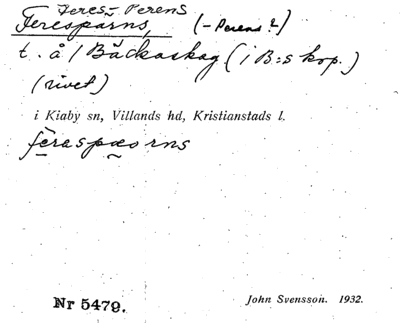 Jeres-Perens
Jeresparns, (-Perens?)
t. å / Bäckaskog (i B:s kop.)
(rivet)
i Kiaby sn, Villands hd, Kristianstads l.
Nr 5479.
John Svensson. 1932.